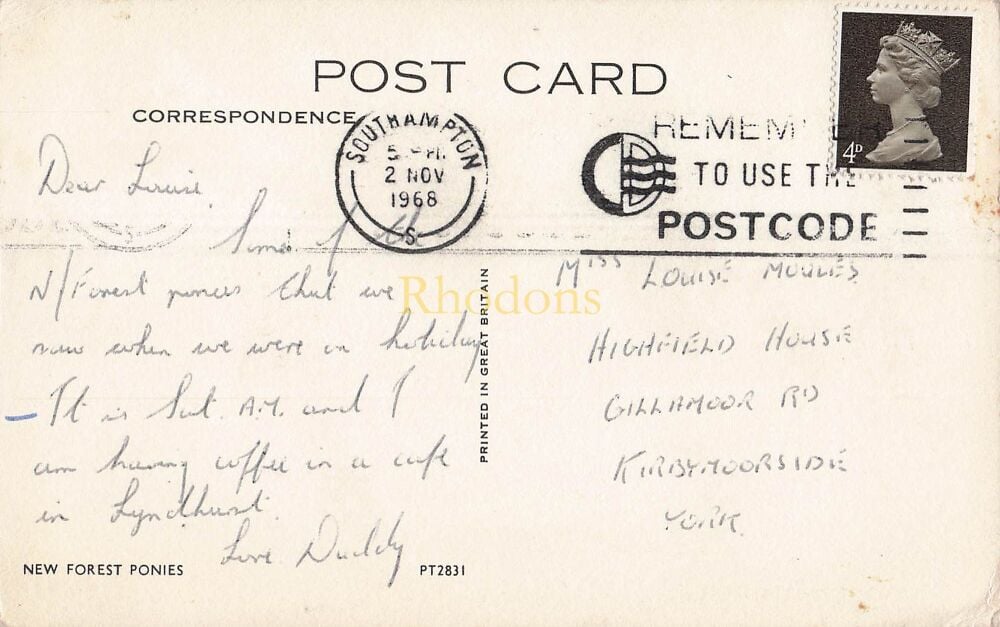 POST CARD
CORRESPONDENCE
SOUTHAMPTON
5 - PM
2 NOV
1968
S
REMEMBER
TO USE THE
POSTCODE
4D
Dear Louise
Some of the
N/Forest ponies that we
saw when we were on holiday
It is Sat. A.M. and I
am having coffee in a cafe
in Lyndhurst.
Love Daddy
PRINTED IN GREAT BRITAIN
Rhodons
Miss LOUISE
HIGHFIELD HOUSE
GILLAMOOR RD
KIRBYMOORSIDE
YORK.
NEW FOREST PONIES
PT2831